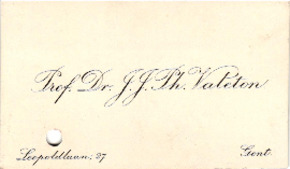 Prof. Dr. J. J. Ph. Valeton
Leopoldlaan, 27 Gent.